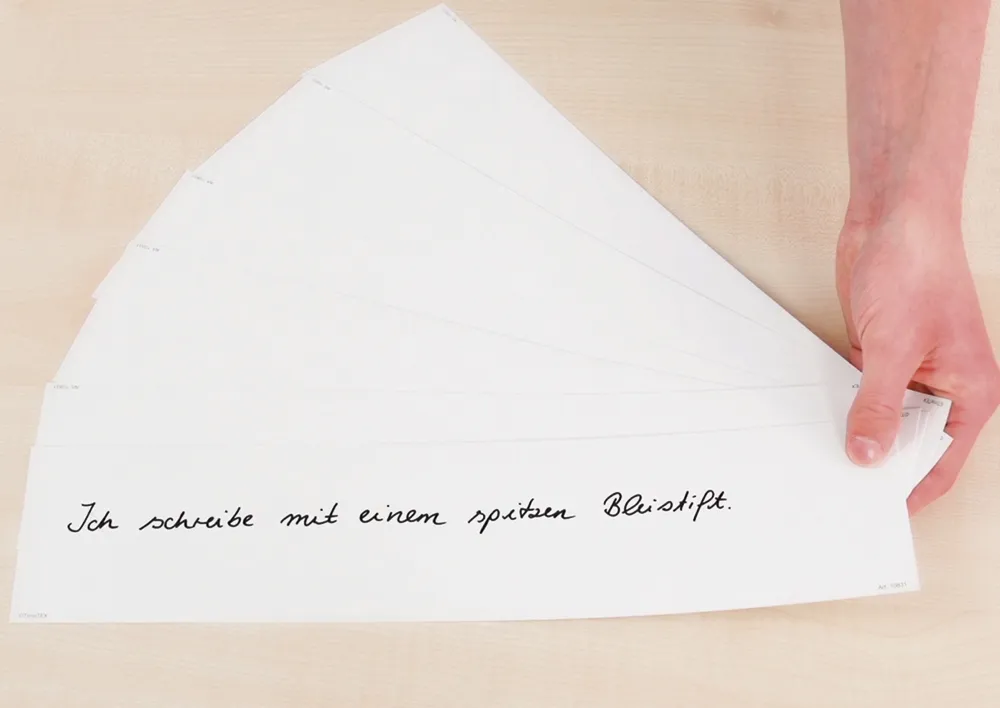 Ich schreibe mit einem spitzen Bleistift.